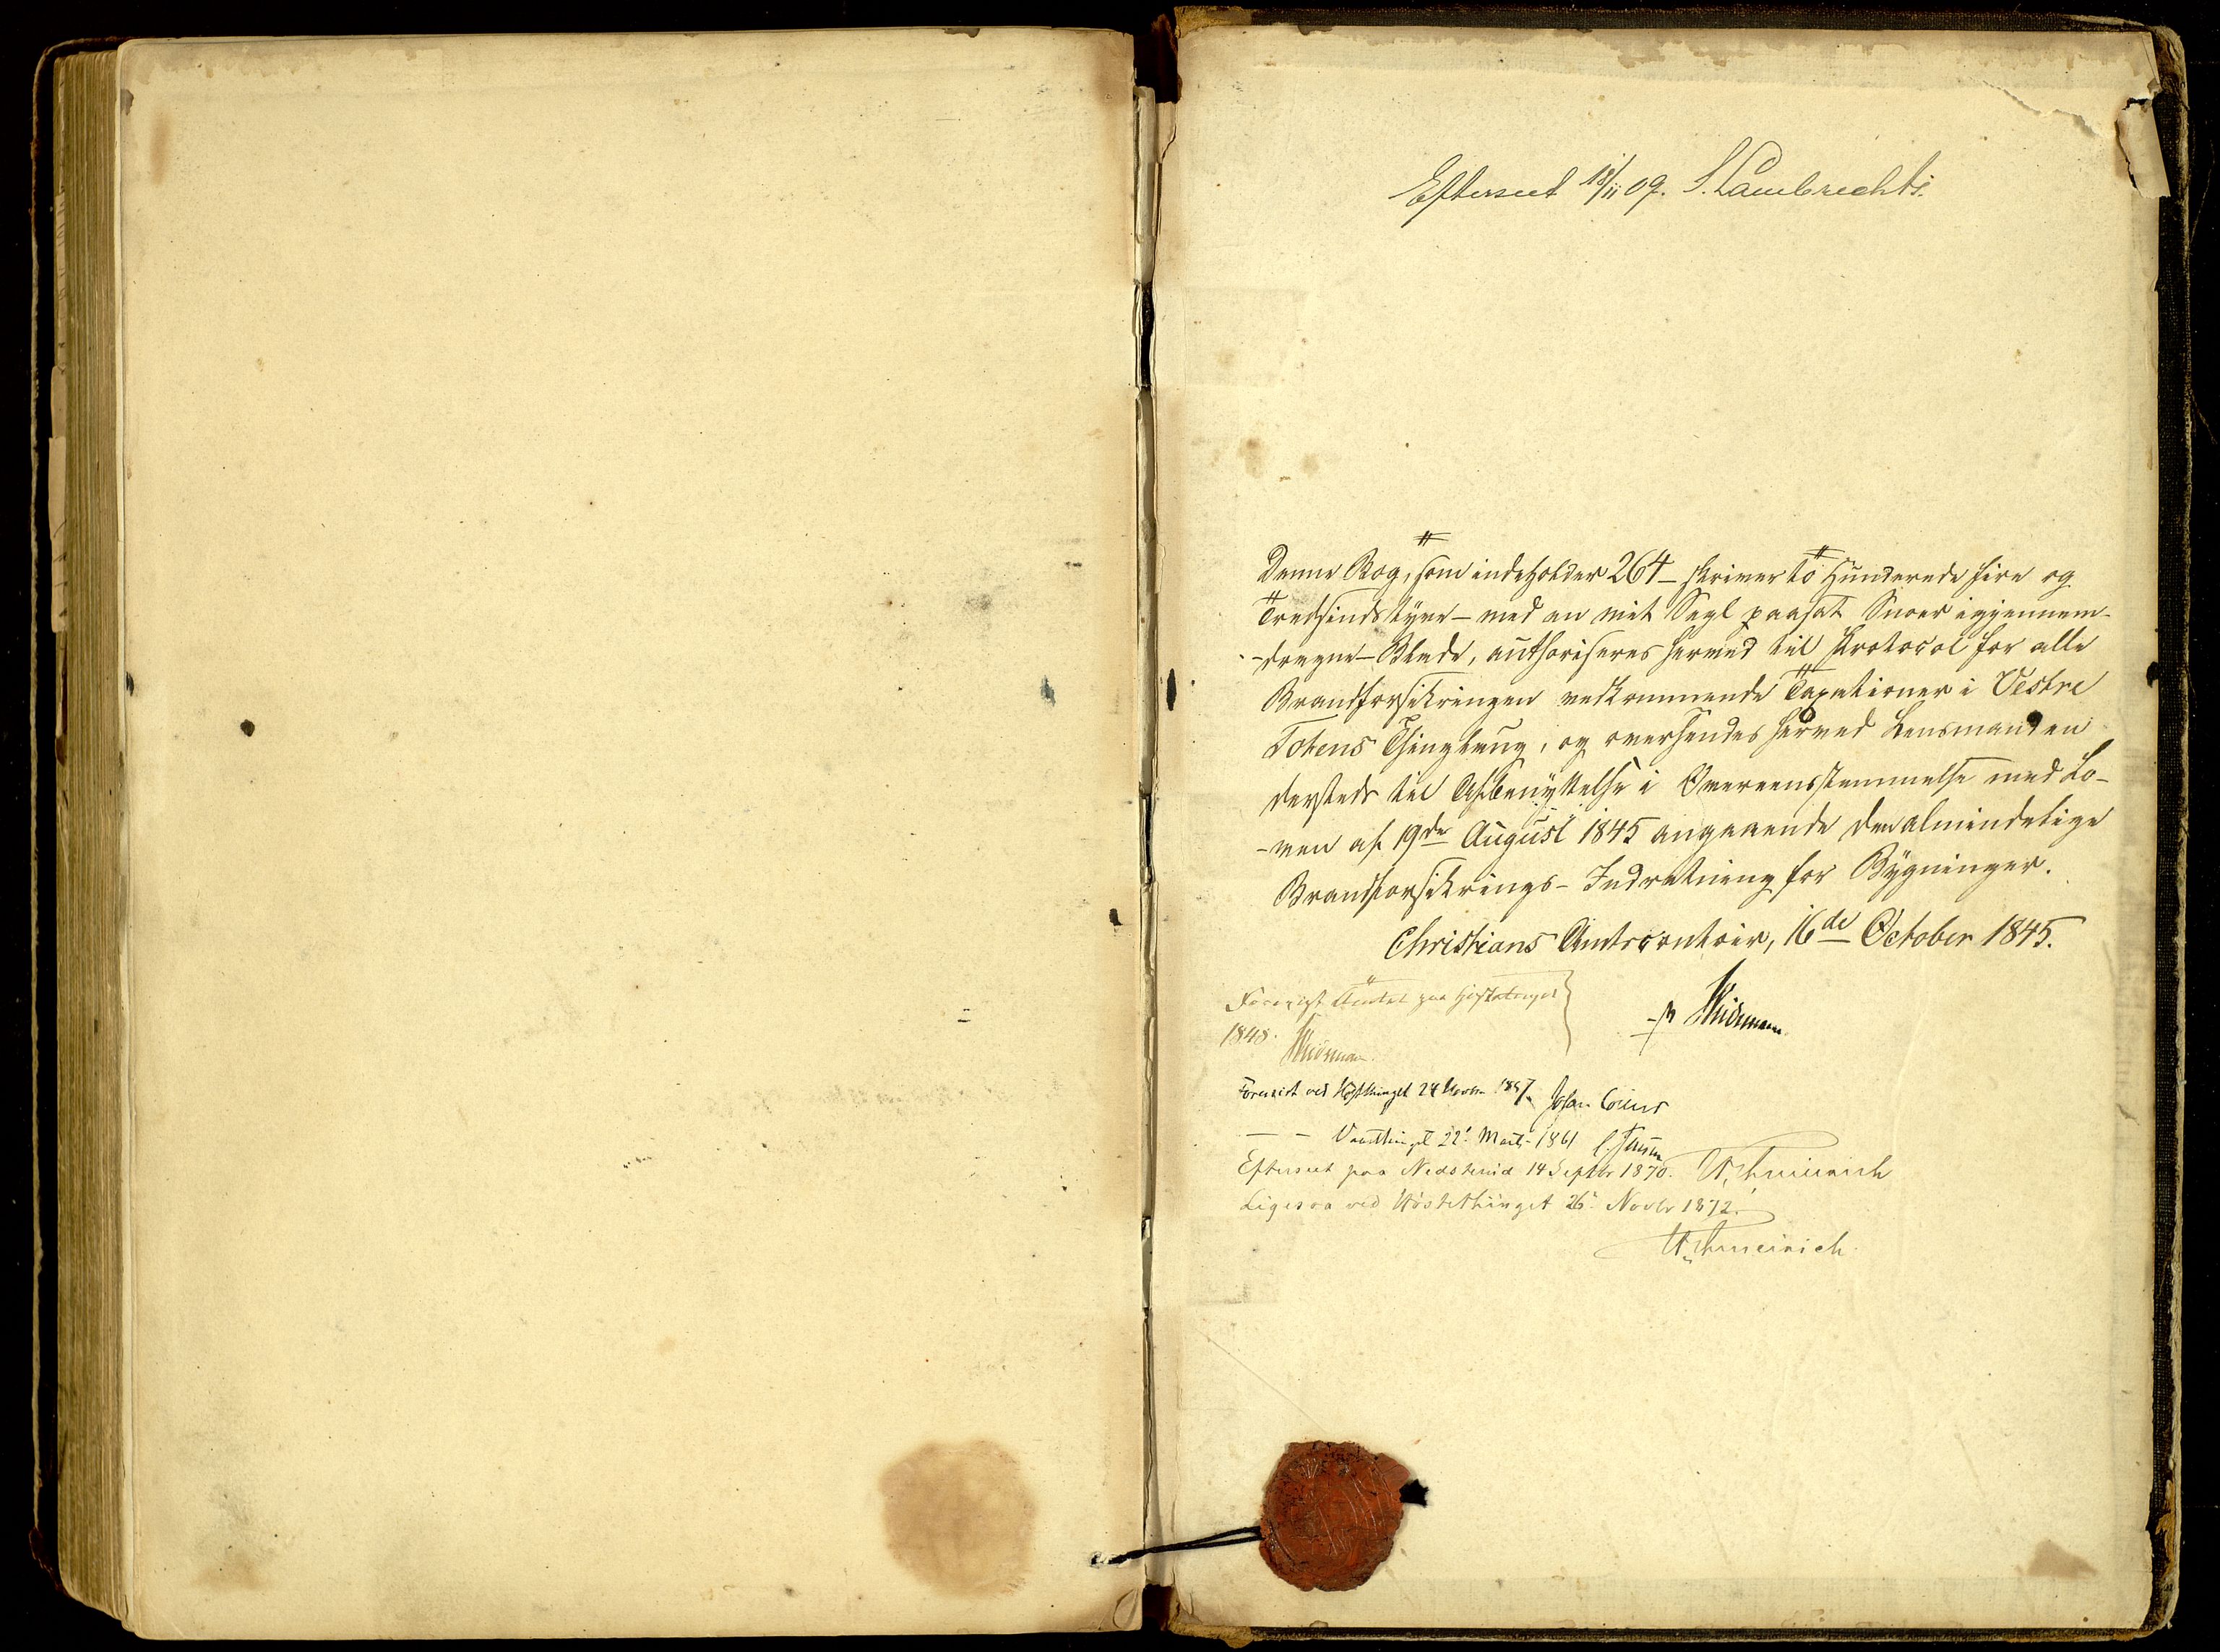 Efterseet 18/11 09. S. Lambrechts.
Denne Bog, som indeholder 264 – skriver to Hunderede fire og
Tredsindstyve – med en mit Segl paasat Snoer igjennem-
-dragne – Blade, authoriseres herved til Protocol for alle
Brandforsikringen vedkommende Taxationer i Vestre
Totens Thinglaug, og oversendes herved Lensmanden
dersteds til Afbenyttelse i Overeensstemmelse med Lo-
-ven af 19de August 1845 angaaende den almindelige
Brandforsikrings-Indretning for Bygninger.
Christians Amtscontoir, 16de October 1845.
Foreviist Amtet paa Høstetinget
1848.
Forevist ved Høstthinget 24 Novbr 1857 Johan Collett
— — Vaarthinget 22' Marts 1861
Efterseet paa 14 Septbr 1870.
Ligesaa ved Høstethinget 26' Novbr 1872.